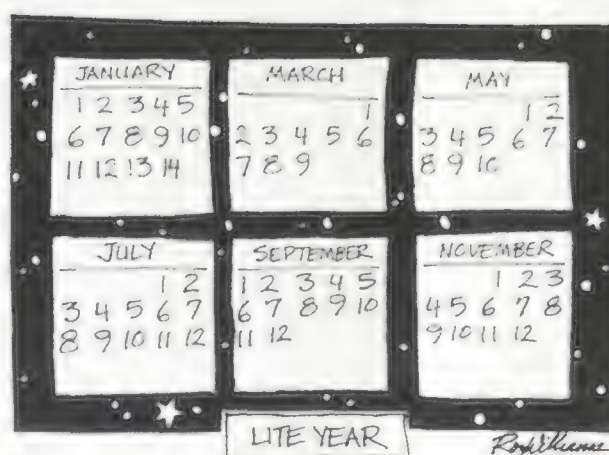 JANUARY
1 2 3 4 5
6 7 8 9 10
11 12 13 14
MARCH
1
2 3 4 5 6
7 8 9
MAY
1 2
3 4 5 6 7
8 9 10
JULY
1 2
3 4 5 6 7
8 9 10 11 12
SEPTEMBER
1 2 3 4 5
6 7 8 9 10
11 12
NOVEMBER
1 2 3
4 5 6 7 8
9 10 11 12
LITE YEAR